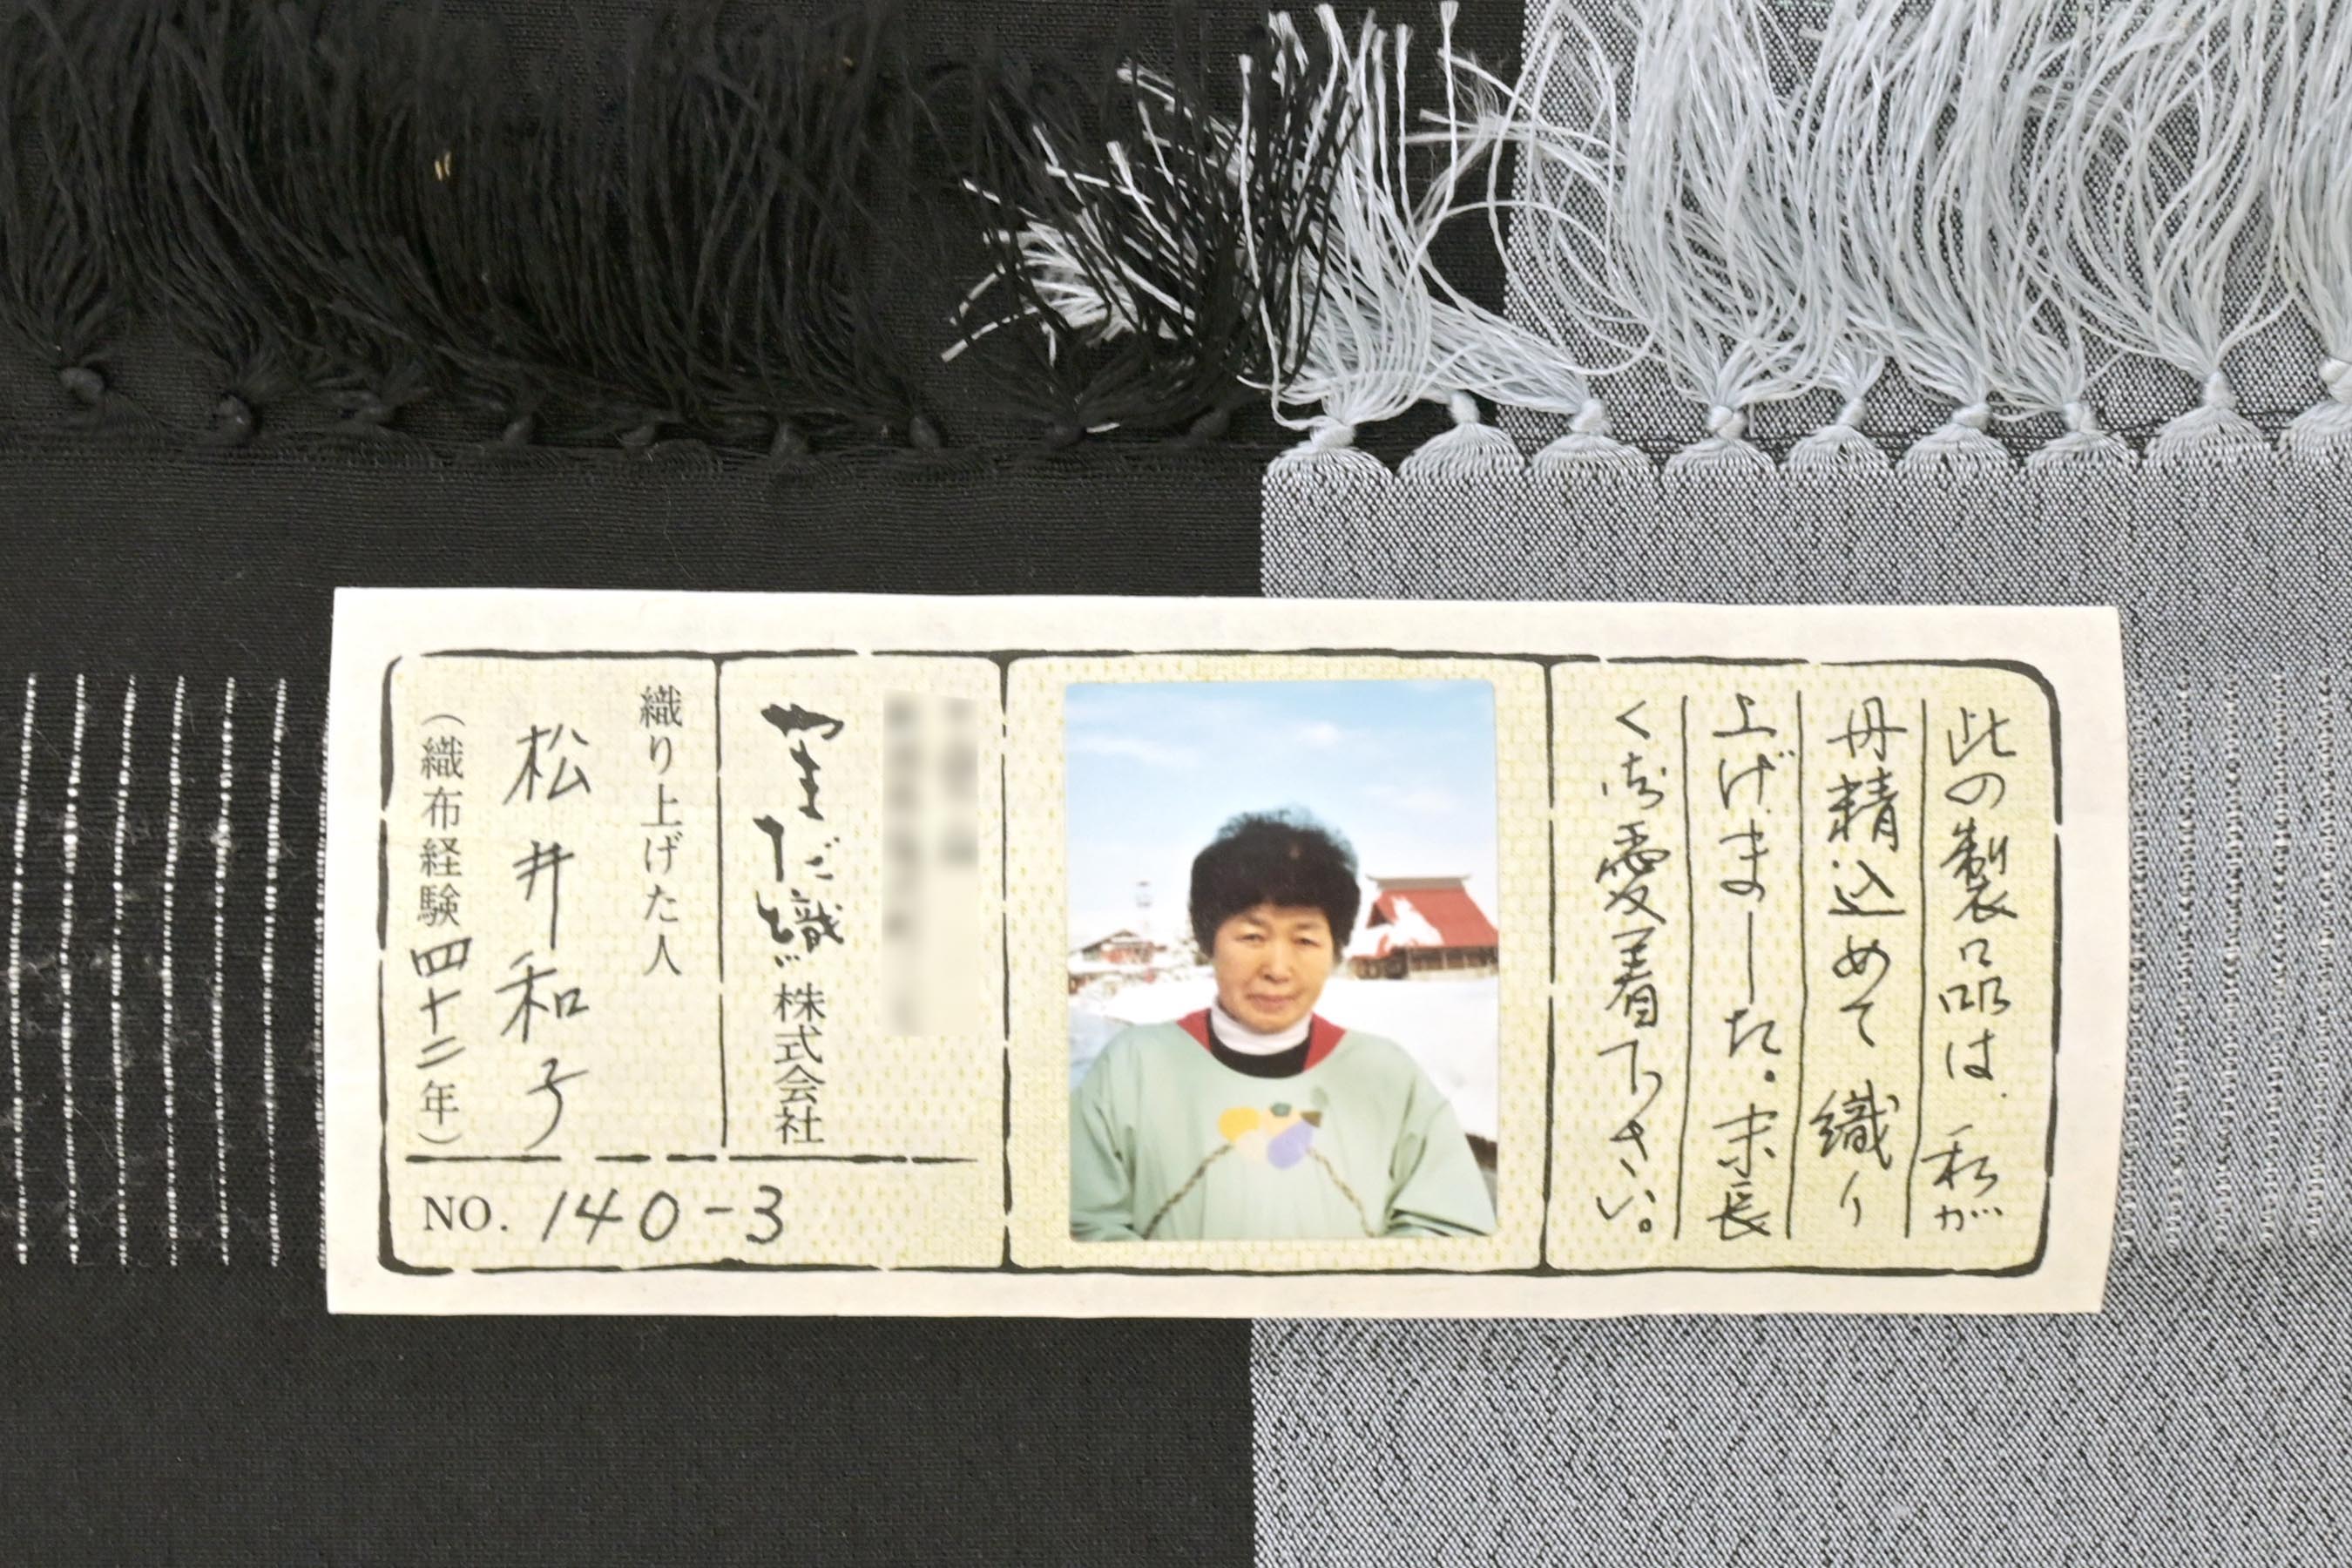 此の製品は、私が
丹精込めて織り
上げました。末長
く御愛着下さい。
やまだ織株式会社
織り上げた人
松井和子
(織布経験四十二年)
NO. 140-3